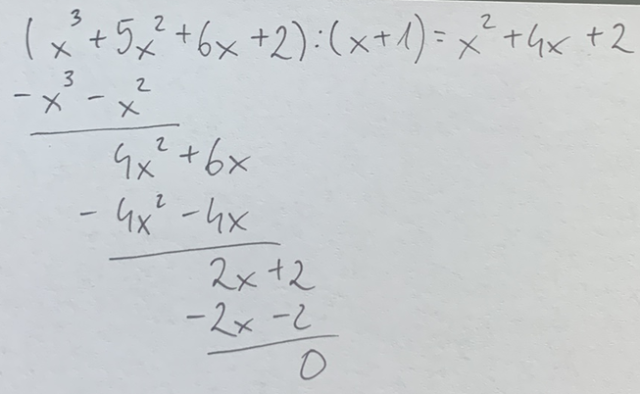 (x³ + 5x² + 6x + 2) : (x + 1) = x² + 4x + 2
- x³ - x²
4x² + 6x
- 4x² - 4x
2x + 2
- 2x - 2
0